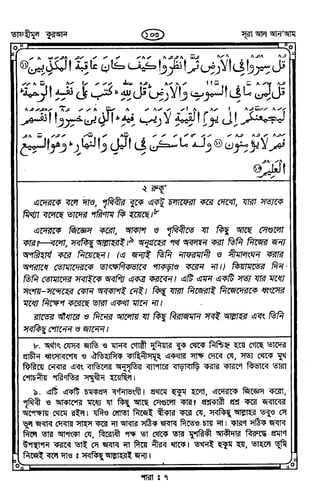 তাফহীমুল কুরআন ১০৩ সূরা আল আন'আম
قُلْ سِيرُوا فِي الْأَرْضِ ثُمَّ انْظُرُوا كَيْفَ كَانَ عَاقِبَةُ الْمُكَذِّبِينَ ⑪
قُلْ لِّمَنْ مَّا فِي السَّمٰوٰتِ وَالْأَرْضِ قُلْ لِّلّٰهِ كَتَبَ عَلٰى نَفْسِهِ الرَّحْمَةَ
لَيَجْمَعَنَّكُمْ إِلٰى يَوْمِ الْقِيٰمَةِ لَا رَيْبَ فِيهِ الَّذِينَ خَسِرُوا أَنْفُسَهُمْ
فَهُمْ لَا يُؤْمِنُونَ ⑫ وَلَهُ مَا سَكَنَ فِي الَّيْلِ وَالنَّهَارِ وَهُوَ السَّمِيعُ
الْعَلِيمُ ⑬
২ রুকূ'
এদেরকে বলে দাও, পৃথিবীর বুকে একটু চলাফেরা করে দেখো, যারা সত্যকে
মিথ্যা বলেছে তাদের পরিণাম কি হয়েছে।৮
এদেরকে জিজ্ঞেস করো, আকাশ ও পৃথিবীতে যা কিছু আছে সেগুলো
কার?—বলো, সবকিছু আল্লাহরই।৯ অনুগ্রহের পথ অবলম্বন করা তিনি নিজের জন্য
অপরিহার্য করে নিয়েছেন। (এ জন্যই তিনি নাফরমানী ও সীমালংঘন করার
অপরাধে তোমাদেরকে তাৎক্ষণিকভাবে পাকড়াও করেন না।) কিয়ামতের দিন
তিনি তোমাদের সবাইকে অবশ্যি একত্র করবেন। এটি এমন একটি সত্য যার মধ্যে
সংশয়-সন্দেহের কোন অবকাশই নেই। কিন্তু যারা নিজেরাই নিজেদেরকে ধ্বংসের
মধ্যে নিক্ষেপ করেছে তারা একথা মানে না।
রাতের আঁধারে ও দিনের আলোয় যা কিছু বিরাজমান সবই আল্লাহর এবং তিনি
সবকিছু শোনেন ও জানেন।
৮. অর্থাৎ যেসব জাতি ও মানব গোষ্ঠী দুনিয়ার বুক থেকে নিশ্চিহ্ন হয়ে গেছে তাদের
প্রাচীন ধ্বংসাবশেষ ও ঐতিহাসিক কাহিনীসমূহ একথার সাক্ষ দেবে যে, সত্য থেকে মুখ
ফিরিয়ে নেবার এবং বাতিলের অনুসৃতির ব্যাপারে বাড়াবাড়ি করার কারণে কিভাবে তারা
শোচনীয় পরিণতির সম্মুখীন হয়েছিল।
৯. এটি একটি চমকপ্রদ বর্ণনাভংগী। প্রথমে হুকুম হলো, এদেরকে জিজ্ঞেস করো,
পৃথিবী ও আকাশের মধ্যে যা কিছু আছে সেগুলো কার? প্রশ্নকারী প্রশ্ন করে জবাবের
অপেক্ষায় থেমে রইল। যদিও শ্রোতা নিজেই স্বীকার করে যে, সবকিছু আল্লাহর তবুও সে
ভুল জবাব দেবার সাহস করে না আবার সঠিক জবাব দিতেও চায় না। কারণ সঠিক জবাব
দিলে তার আশংকা যে, বিরোধী পক্ষ তা থেকে তার মুশরিকী আকীদার বিরুদ্ধে প্রমাণ
উপস্থাপন করবে তাই সে জবাব না দিয়ে নীরব থাকে। তখনই হুকুম হয়, তাহলে তুমি
নিজেই বলে দাও ঃ সবকিছু আল্লাহরই জন্য।
পারা ঃ ৭